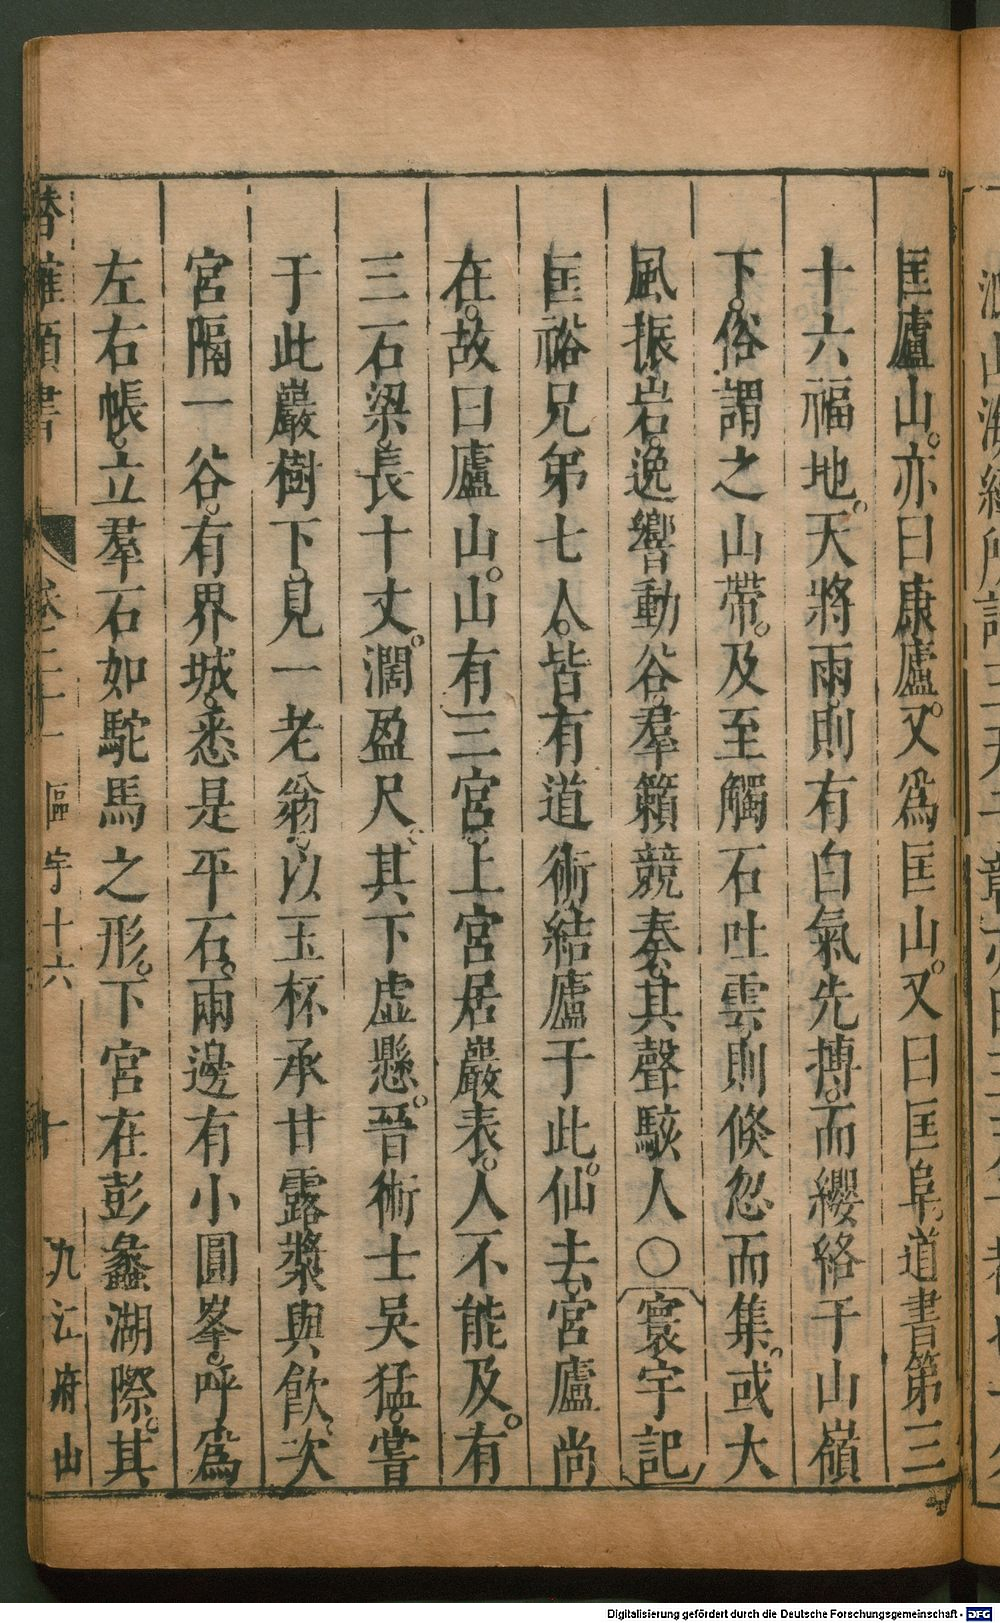 匡廬山。亦曰康廬。又爲匡山。又曰匡阜。道書第三
十六福地。天將雨。則有白氣先摶。而纓絡于山嶺
下。俗謂之山帶。及至觸石吐雲。則倐忽而集。或大
風振岩。逸響動谷。羣籟競奏。其聲駭人○寰宇記
匡裕兄弟七人。皆有道術。結廬于此。仙去。宮廬尚
在。故曰廬山。山有三宮。上宮居巖表。人不能及。有
三石梁。長十丈。濶盈尺。其下虛懸。晉術士吳猛。嘗
于此巖樹下。見一老翁。以玉杯承甘露漿與飲。次
宮隔一谷。有界城。悉是平石。兩邊有小圓峯。呼爲
左右帳。立羣石如駝馬之形。下宮在彭蠡湖際。其
潛確類書 卷二十一 區宇十六 十 九江府山
Digitalisierung gefördert durch die Deutsche Forschungsgemeinschaft - DFG